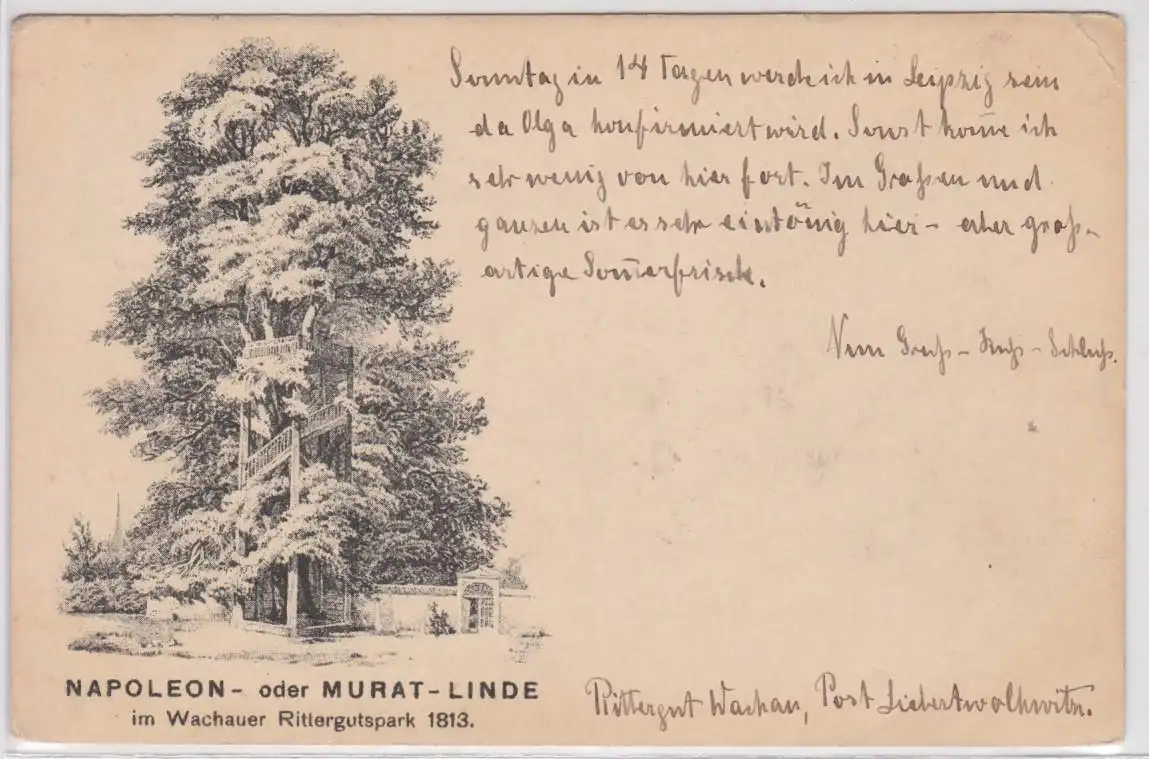 Sonntag in 14 Tagen werde ich in Leipzig sein
da Olga konfirmiert wird. Sonst kom̅e ich
sehr wenig von hier fort. Im Großen und
ganzen ist es sehr eintönig hier – aber groß-
artige Som̅erfrische.
Nun Gruß – Kuß – Schluß.
NAPOLEON - oder MURAT - LINDE
im Wachauer Rittergutspark 1813.
Rittergut Wachau, Post Liebertwolkwitz.